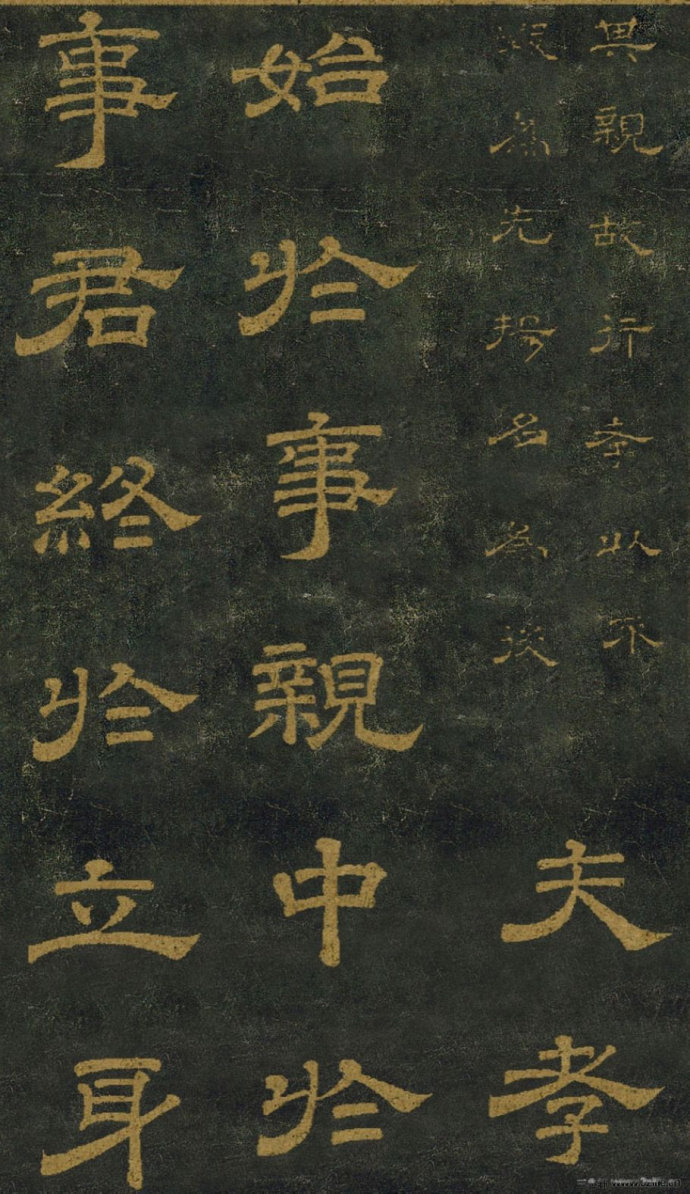 其親故行孝以不
毀為先揚名為後
夫孝
始於事親中於
事君終於立身